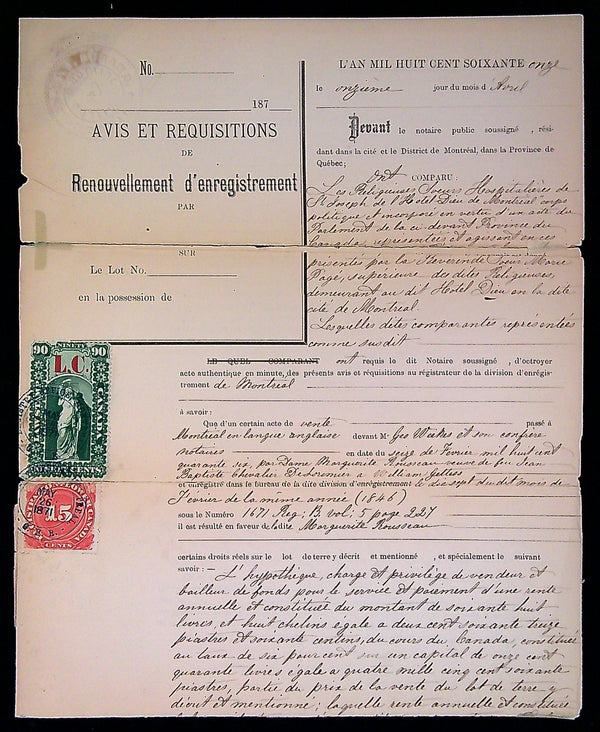 No.
187
AVIS ET REQUISITIONS
DE
Renouvellement d'enregistrement
PAR
SUR
Le Lot No.
en la possession de
L'AN MIL HUIT CENT SOIXANTE onze
le onzième jour du mois d'Avril
Devant le notaire public soussigné, rési-
dant dans la cité et le District de Montréal, dans la Province de
Québec;
ont COMPARU:
Les Religieuses Soeurs Hospitalières de
St Joseph de l'Hotel Dieu de Montréal corps
politique et incorporé en vertu d'un acte du
Parlement de la ci devant Province du
Canada, representées et agissant en ces
présentes par la Reverende Soeur Marie
Pagé, supérieure des dites Religieuses,
demeurant au dit Hotel Dieu en la dite
cité de Montreal.
Lesquelles dites comparantes représentées
comme susdit
LE QUEL COMPARANT ont requis le dit Notaire soussigné, d'octroyer
acte authentique en minute, des présents avis et réquisitions au régistrateur de la division d'enrégis-
trement de Montréal
à savoir:
Que d'un certain acte de vente passé à
Montréal en langue anglaise devant Mr Geo Weekes et son confrere
notaires en date du seize de Fevrier mil huit cent
quarante six, par Dame Marguerite Rousseau veuve de feu Jean
Baptiste Chevalier DeLorimier à William
et enrégistré dans le bureau de la dite division d'enrégistrement le dix sept du dit mois de
Fevrier de la même année (1846)
sous le Numéro 1671 Reg: B vol: 5 page 227
il est résulté en faveur de ladite Marguerite Rousseau
certains droits réels sur le lot de terre y décrit et mentionné, et spécialement le suivant
savoir:— L'hypothèque, charge et privilège de vendeur et
bailleur de fonds pour le service et paiement d'une rente
annuelle et constituée du montant de soixante huit
livres, et huit chelins égale à deux cent soixante treize
piastres et soixante centins, du cours du Canada, constituée
au taux de six pour cent sur un capital de onze cent
quarante livres égale à quatre mille cinq cent soixante
piastres, partie du prix de la vente du lot de terre y
décrit et mentionné; laquelle rente annuelle et constituée
90 NINETY 90
L.C.
CENTS
MAY
26
1871
15
CANADA
CENTS